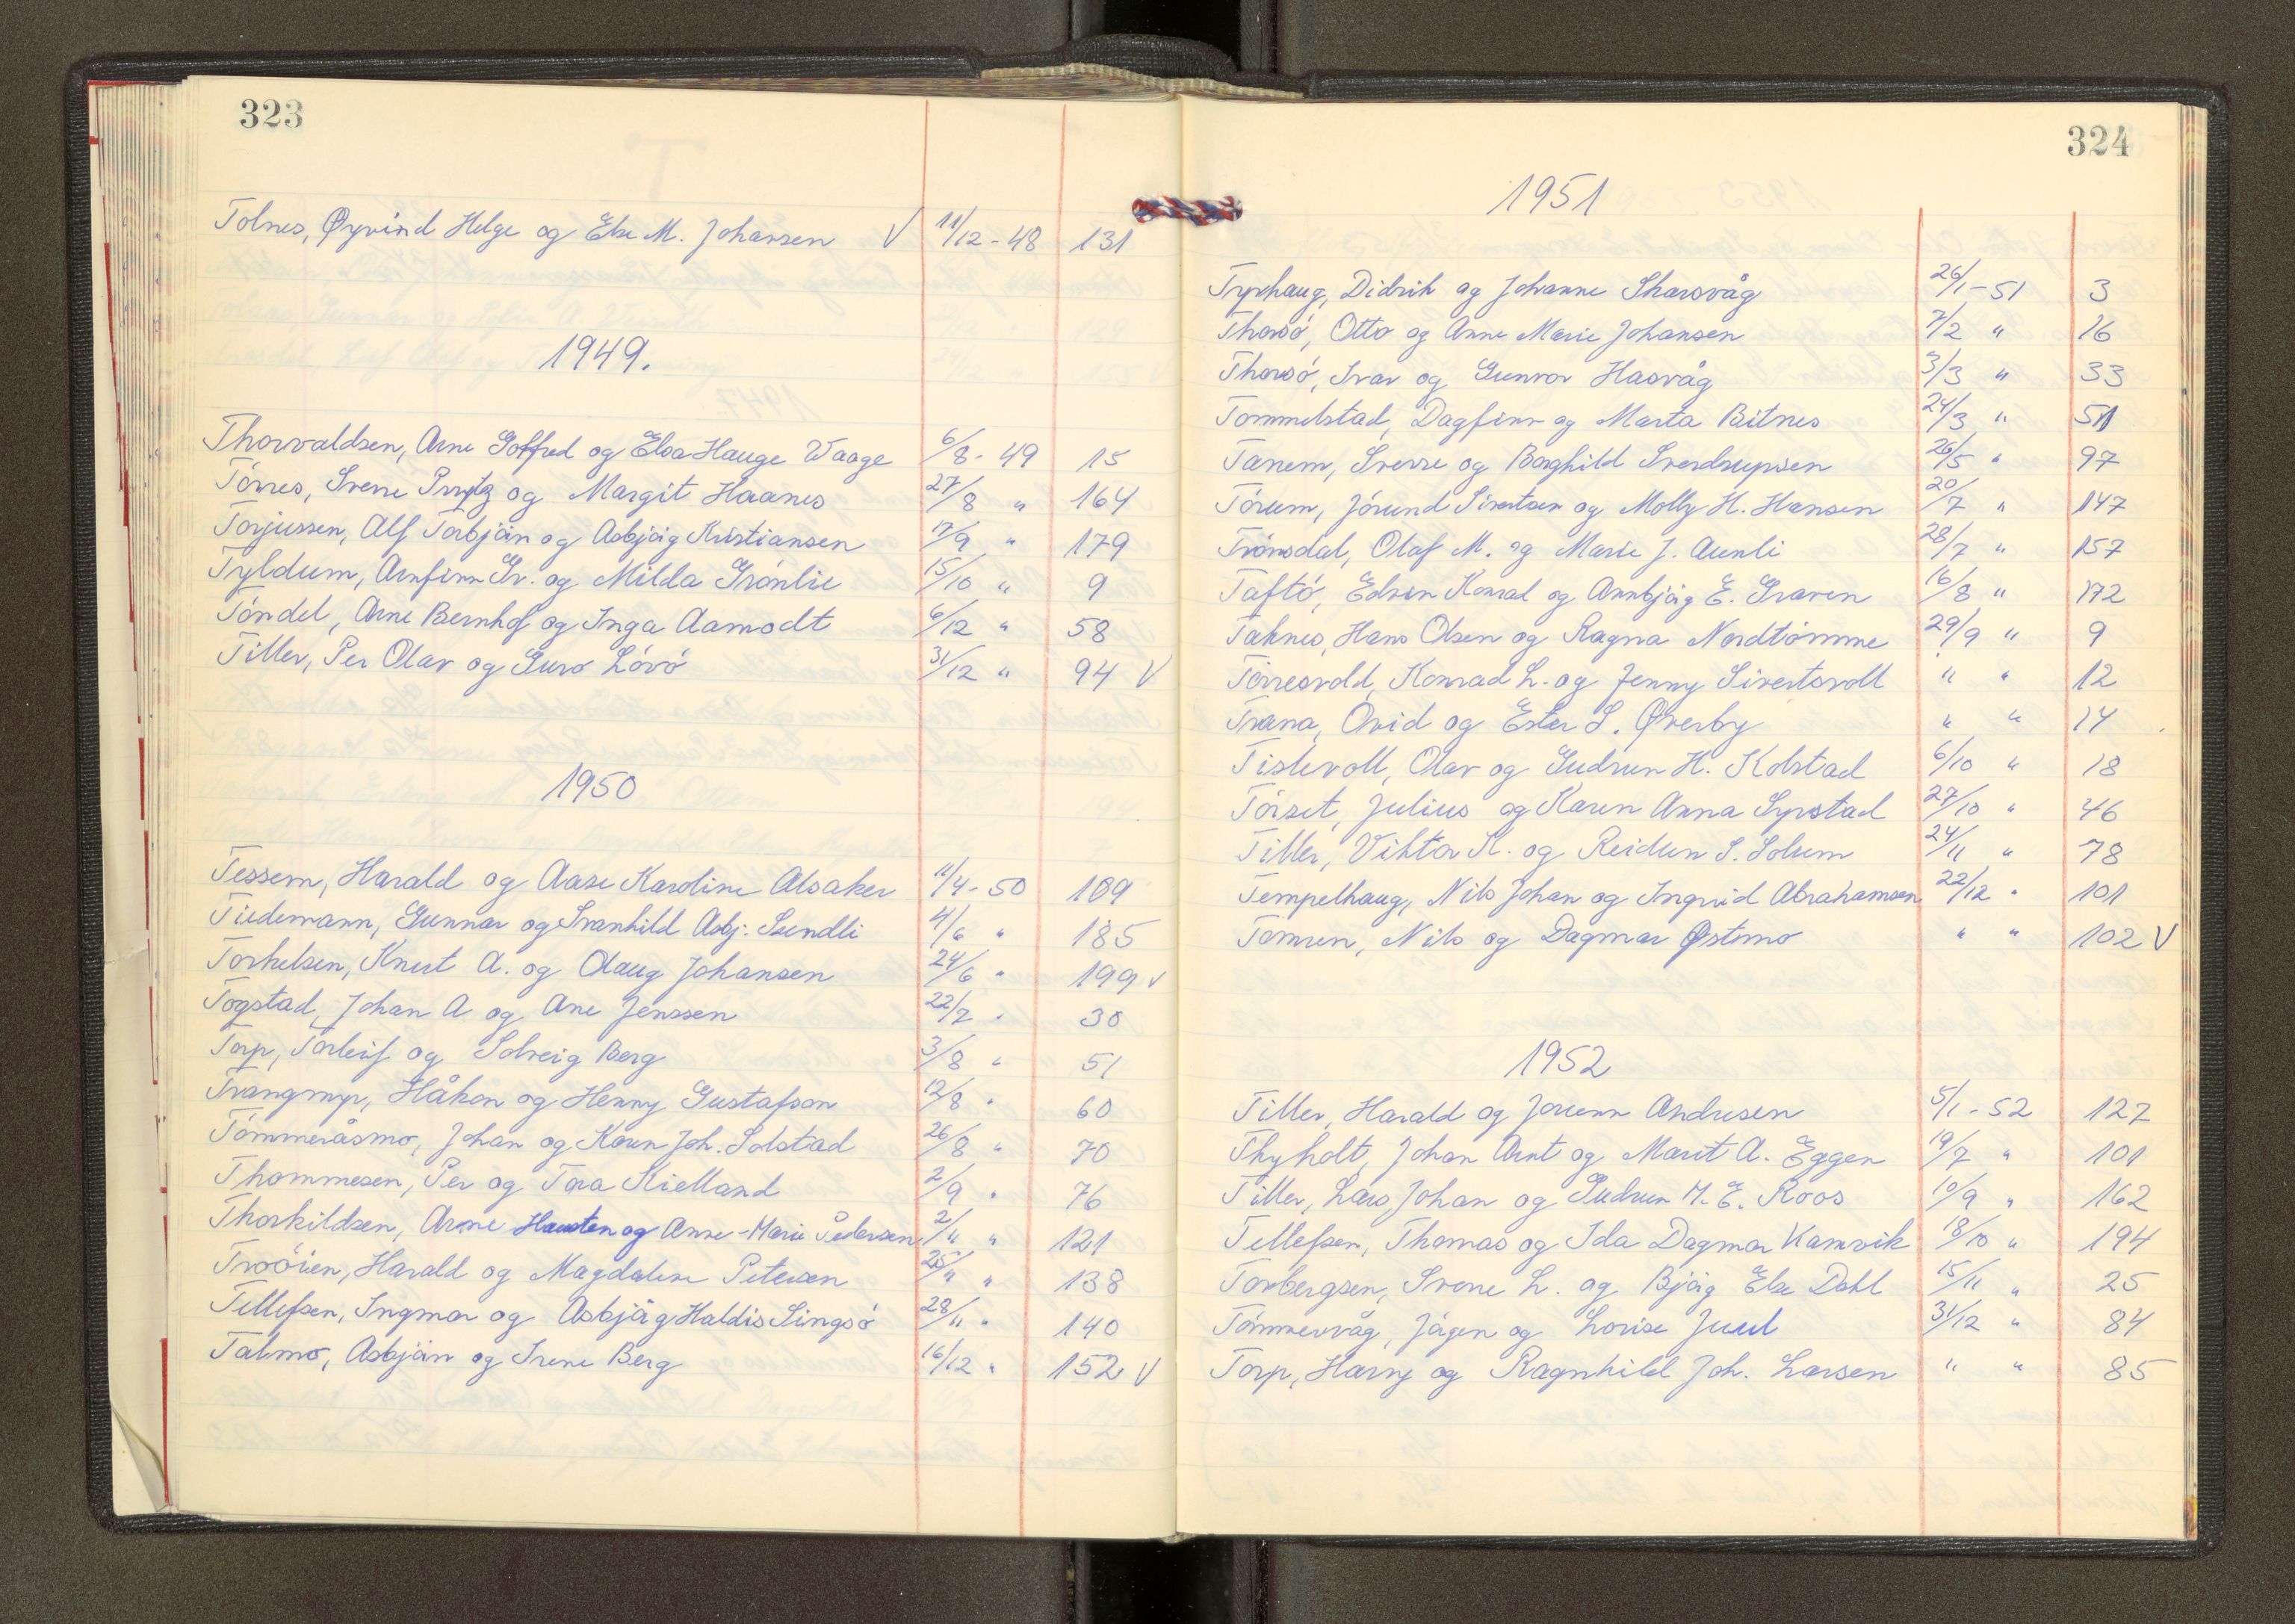 323
Tolnes, Øyvind Helge og Else M. Johansen V 11/12-48 131
1949.
Thorvaldsen, Arne Goffred og Elsa Hauge Waage 6/8-49 15
Tórres, Sverre Prytz og Margit Haanes 27/8 " 164
Torjussen, Alf Torbjörn og Asbjörg Kristiansen 17/9 " 179
Tyldum, Arnfinn Gr. og Milda Grónlie 15/10 " 9
Tóndel, Arne Bernhof og Inga Aamodt 6/12 " 58
Tiller, Per Olav og Guro Lóvó 31/12 " 94 V
1950
Tessem, Harald og Aase Karoline Alsaker 11/4-50 109
Tiedemann, Gunnar og Svanhild Asbj. Sundli 4/6 " 185
Torkelsen, Knut A. og Olaug Johansen 24/6 " 199 V
Togstad, Johan A og Ane Jenssen 22/7 " 30
Torp, Torleif og Solveig Berg 3/8 " 51
Trangmyr, Håkon og Henny Gustafson 12/8 " 60
Tómmeråsmo, Johan og Karen Joh. Solstad 26/8 " 70
Thommesen, Per og Tora Kielland 2/9 " 76
Thorkildsen, Arne Hausten og Anne-Marie Pedersen 2/11 " 121
Troóien, Harald og Magdalene Petersen 25/11 " 138
Tellefsen, Ingmar og Asbjörg Haldis Singsó 28/11 " 140
Talmo, Asbjörn og Irene Berg 16/12 " 152 V
324
1951
Tyrhaug, Didrik og Johanne Skarsvåg 26/1-51 3
Thorsó, Otto og Anne Marie Johansen 7/2 " 16
Thorsó, Ivar og Gunvor Hasvåg 3/3 " 33
Tommelstad, Dagfinn og Marta Bitnes 24/3 " 51
Tanem, Sverre og Borghild Sverdrupsen 26/5 " 97
Tórum, Jórund Sivertsen og Molly H. Hansen 20/7 " 147
Trónsdal, Olaf M. og Marie J. Aunli 28/7 " 157
Taftó, Edvin Konrad og Annbjörg E. Graven 16/8 " 172
Taknes, Hans Olsen og Ragna Nordtómme 29/9 " 9
Tórresvold, Konrad L. og Jenny Sivertsvoll " " 12
Trana, Ovid og Ester S. Øverby " " 14
Tislevoll, Olav og Gudrun H. Kolstad 6/10 " 18
Tórset, Julius og Karen Anna Syrstad 27/10 " 46
Tiller, Viktor K. og Reidun S. Solum 24/11 " 78
Tempelhaug, Nils Johan og Ingrid Abrahamsen 22/12 " 101
Tomren, Nils og Dagmar Østmo " " 102 V
1952
Tiller, Harald og Jorunn Andresen 5/1-52 127
Thyholt, Johan Arnt og Marit A. Eggen 19/7 " 101
Tiller, Lars Johan og Gudrun M. E. Roos 10/9 " 162
Tellefsen, Thomas og Ida Dagmar Kamvik 18/10 " 194
Torbergsen, Sverre L. og Bjørg Else Dahl 15/11 " 25
Tómmervåg, Jörgen og Lovise Juul 31/12 " 84
Torp, Harry og Ragnhild Joh. Larsen " " 85